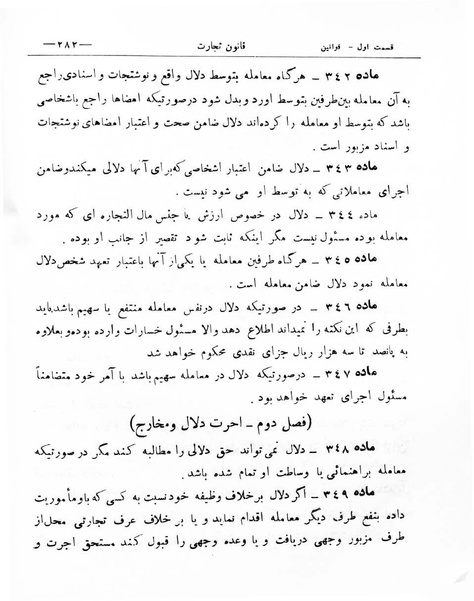 قسمت اول - قوانین قانون تجارت —۲۸۲—
ماده ۳۴۲ ـ هرگاه معامله بتوسط دلال واقع و نوشتجات و اسنادی راجع
به آن معامله بین طرفین بتوسط او رد و بدل شود درصورتیکه امضاها راجع باشخاصی
باشد که بتوسط او معامله را کرده‌اند دلال ضامن صحت و اعتبار امضاهای نوشتجات
و اسناد مزبور است .
ماده ۳۴۳ ـ دلال ضامن اعتبار اشخاصی که برای آنها دلالی میکند و ضامن
اجرای معاملاتی که به توسط او می شود نیست .
ماده ۳۴۴ ـ دلال در خصوص ارزش یا جنس مال التجاره ای که مورد
معامله بوده مسئول نیست مگر اینکه ثابت شود تقصیر از جانب او بوده .
ماده ۳۴۵ ـ هرگاه طرفین معامله یا یکی از آنها باعتبار تعهد شخص دلال
معامله نمود دلال ضامن معامله است .
ماده ۳۴۶ ـ در صورتیکه دلال درنفس معامله منتفع یا سهیم باشد باید
بطرفی که این نکته را نمیداند اطلاع دهد والا مسئول خسارات وارده بوده و بعلاوه
به پانصد تا سه هزار ریال جزای نقدی محکوم خواهد شد
ماده ۳۴۷ ـ درصورتیکه دلال در معامله سهیم باشد با آمر خود متضامناً
مسئول اجرای تعهد خواهد بود .
(فصل دوم ـ اجرت دلال ومخارج)
ماده ۳۴۸ ـ دلال نمی تواند حق دلالی را مطالبه کند مگر در صورتیکه
معامله براهنمائی یا وساطت او تمام شده باشد .
ماده ۳۴۹ ـ اگر دلال برخلاف وظیفه خود نسبت به کسی که باو مأموریت
داده بنفع طرف دیگر معامله اقدام نماید و یا بر خلاف عرف تجارتی محل از
طرف مزبور وجهی دریافت و یا وعده وجهی را قبول کند مستحق اجرت و